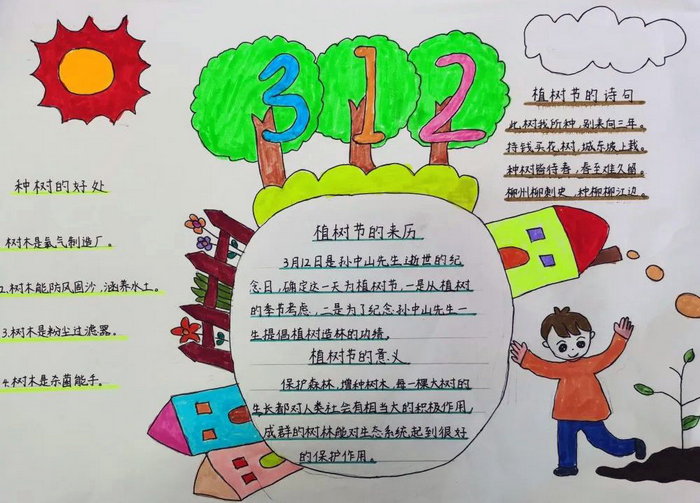 312
植树节的诗句
此树我所种，别来向三年。
持钱买花树，城东坡上栽。
种树皆待春，春至难久留。
柳州柳刺史，种柳柳江边。
种树的好处
树木是氧气制造厂。
2.树木能防风固沙，涵养水土。
3.树木是粉尘过滤器。
4.树木是杀菌能手。
植树节的来历
3月12日是孙中山先生逝世的纪
念日，确定这一天为植树节，一是从植树
的季节考虑，二是为了纪念孙中山先生一
生提倡植树造林的功绩。
植树节的意义
保护森林，增种树木，每一棵大树的
生长都对人类社会有相当大的积极作用，
成群的树林能对生态系统起到很好
的保护作用。